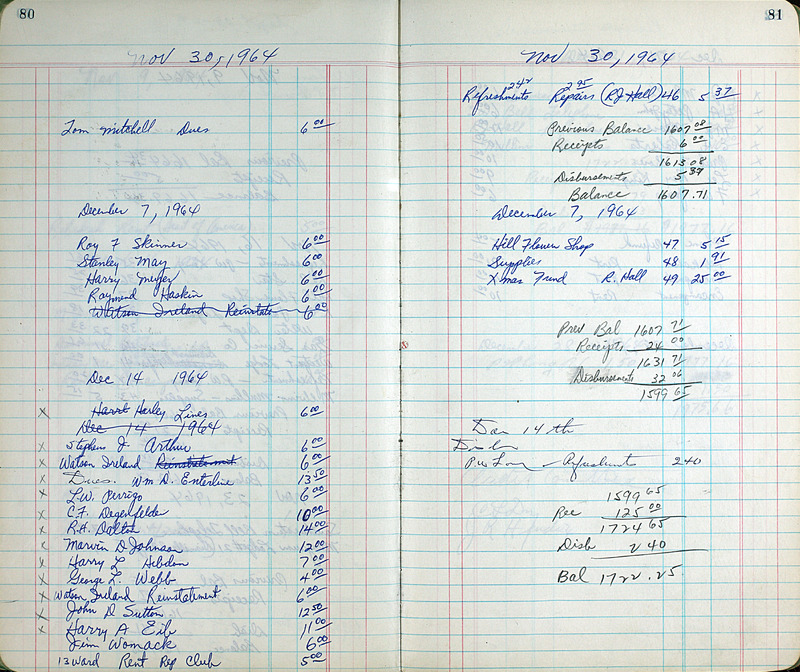 80
Nov 30, 1964
Tom Mitchell Dues 6 00
December 7, 1964
Roy F Skinner 6 00
Stanley May 6 00
Harry Meyer 6 00
Raymond Haskin 6 00
Watson Ireland Reinstate 6 00
Dec 14 1964
Harley Lines 6 00
Dec 14 1964
Stephen J. Arthur 6 00
Watson Ireland Reinstatement 6 00
Dues. Wm D. Enterline 13 50
L.W. Perrigo 6 00
C.F. Degenfelder 10 00
R.H. Dalton 14 00
Marvin D Johnson 12 00
Harry L Hebdon 7 00
George L. Webb 4 00
Watson Ireland Reinstatement 6 00
John D Sutton 12 50
Harry A Eib 11 00
Jim Womack 6 00
13 Ward Rent Rep Club 5 00
81
Nov 30, 1964
Refreshments 2 42 Repairs 2 95 (R.J. Hall) 46 5 37
Previous Balance 1607 08
Receipts 6 00
1613 08
Disbursements 5 37
Balance 1607.71
December 7, 1964
Hill Flower Shop 47 5 15
Supplies 48 1 91
Xmas Fund R. Hall 49 25 00
Prev Bal 1607 71
Receipts 24 00
1631 71
Disbursements 32 06
1599 65
Dec 14 th
Refreshments 2 40
1599 65
Rec 125 00
1724 65
Disb 2 40
Bal 1722.25